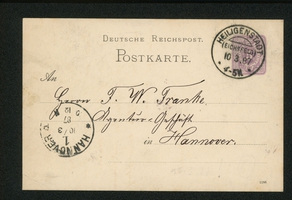 DEUTSCHE REICHSPOST.
POSTKARTE.
HEILIGENSTADT
(EICHSFELD)
10 3. 87
4-5N.
An
Herrn F. W. Franke,
Agentur-Geschäft
in Hannover.
HANNOVER
1.
10/3
87